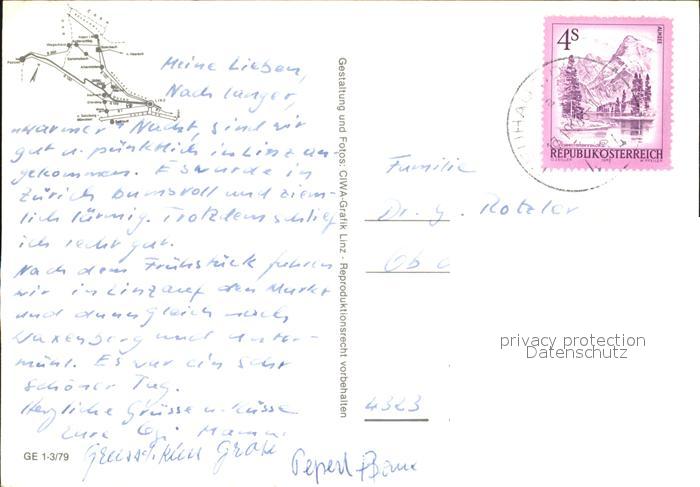 Meine Lieben,
Nach langer,
"warmer" Nacht, sind wir
gut u. pünktlich in Linz an-
gekommen. Es wurde in
Zürich bumsvoll und ziem-
lich lärmig. Trotzdem schlief
ich sehr gut.
Nach dem Frühstück fuhren
wir in Linz auf den Markt
und dann gleich nach
Waxenberg und Unter-
mühl. Es war ein sehr
schöner Tag.
Herzliche Grüsse u. Küsse
Eure
GE 1-3/79
Gestaltung und Fotos: CIWA-Grafik Linz - Reproduktionsrecht vorbehalten
4S
ALMSEE
REPUBLIK ÖSTERREICH
Familie
Dr. g. Rotzler
Ob
privacy protection
Datenschutz
4323